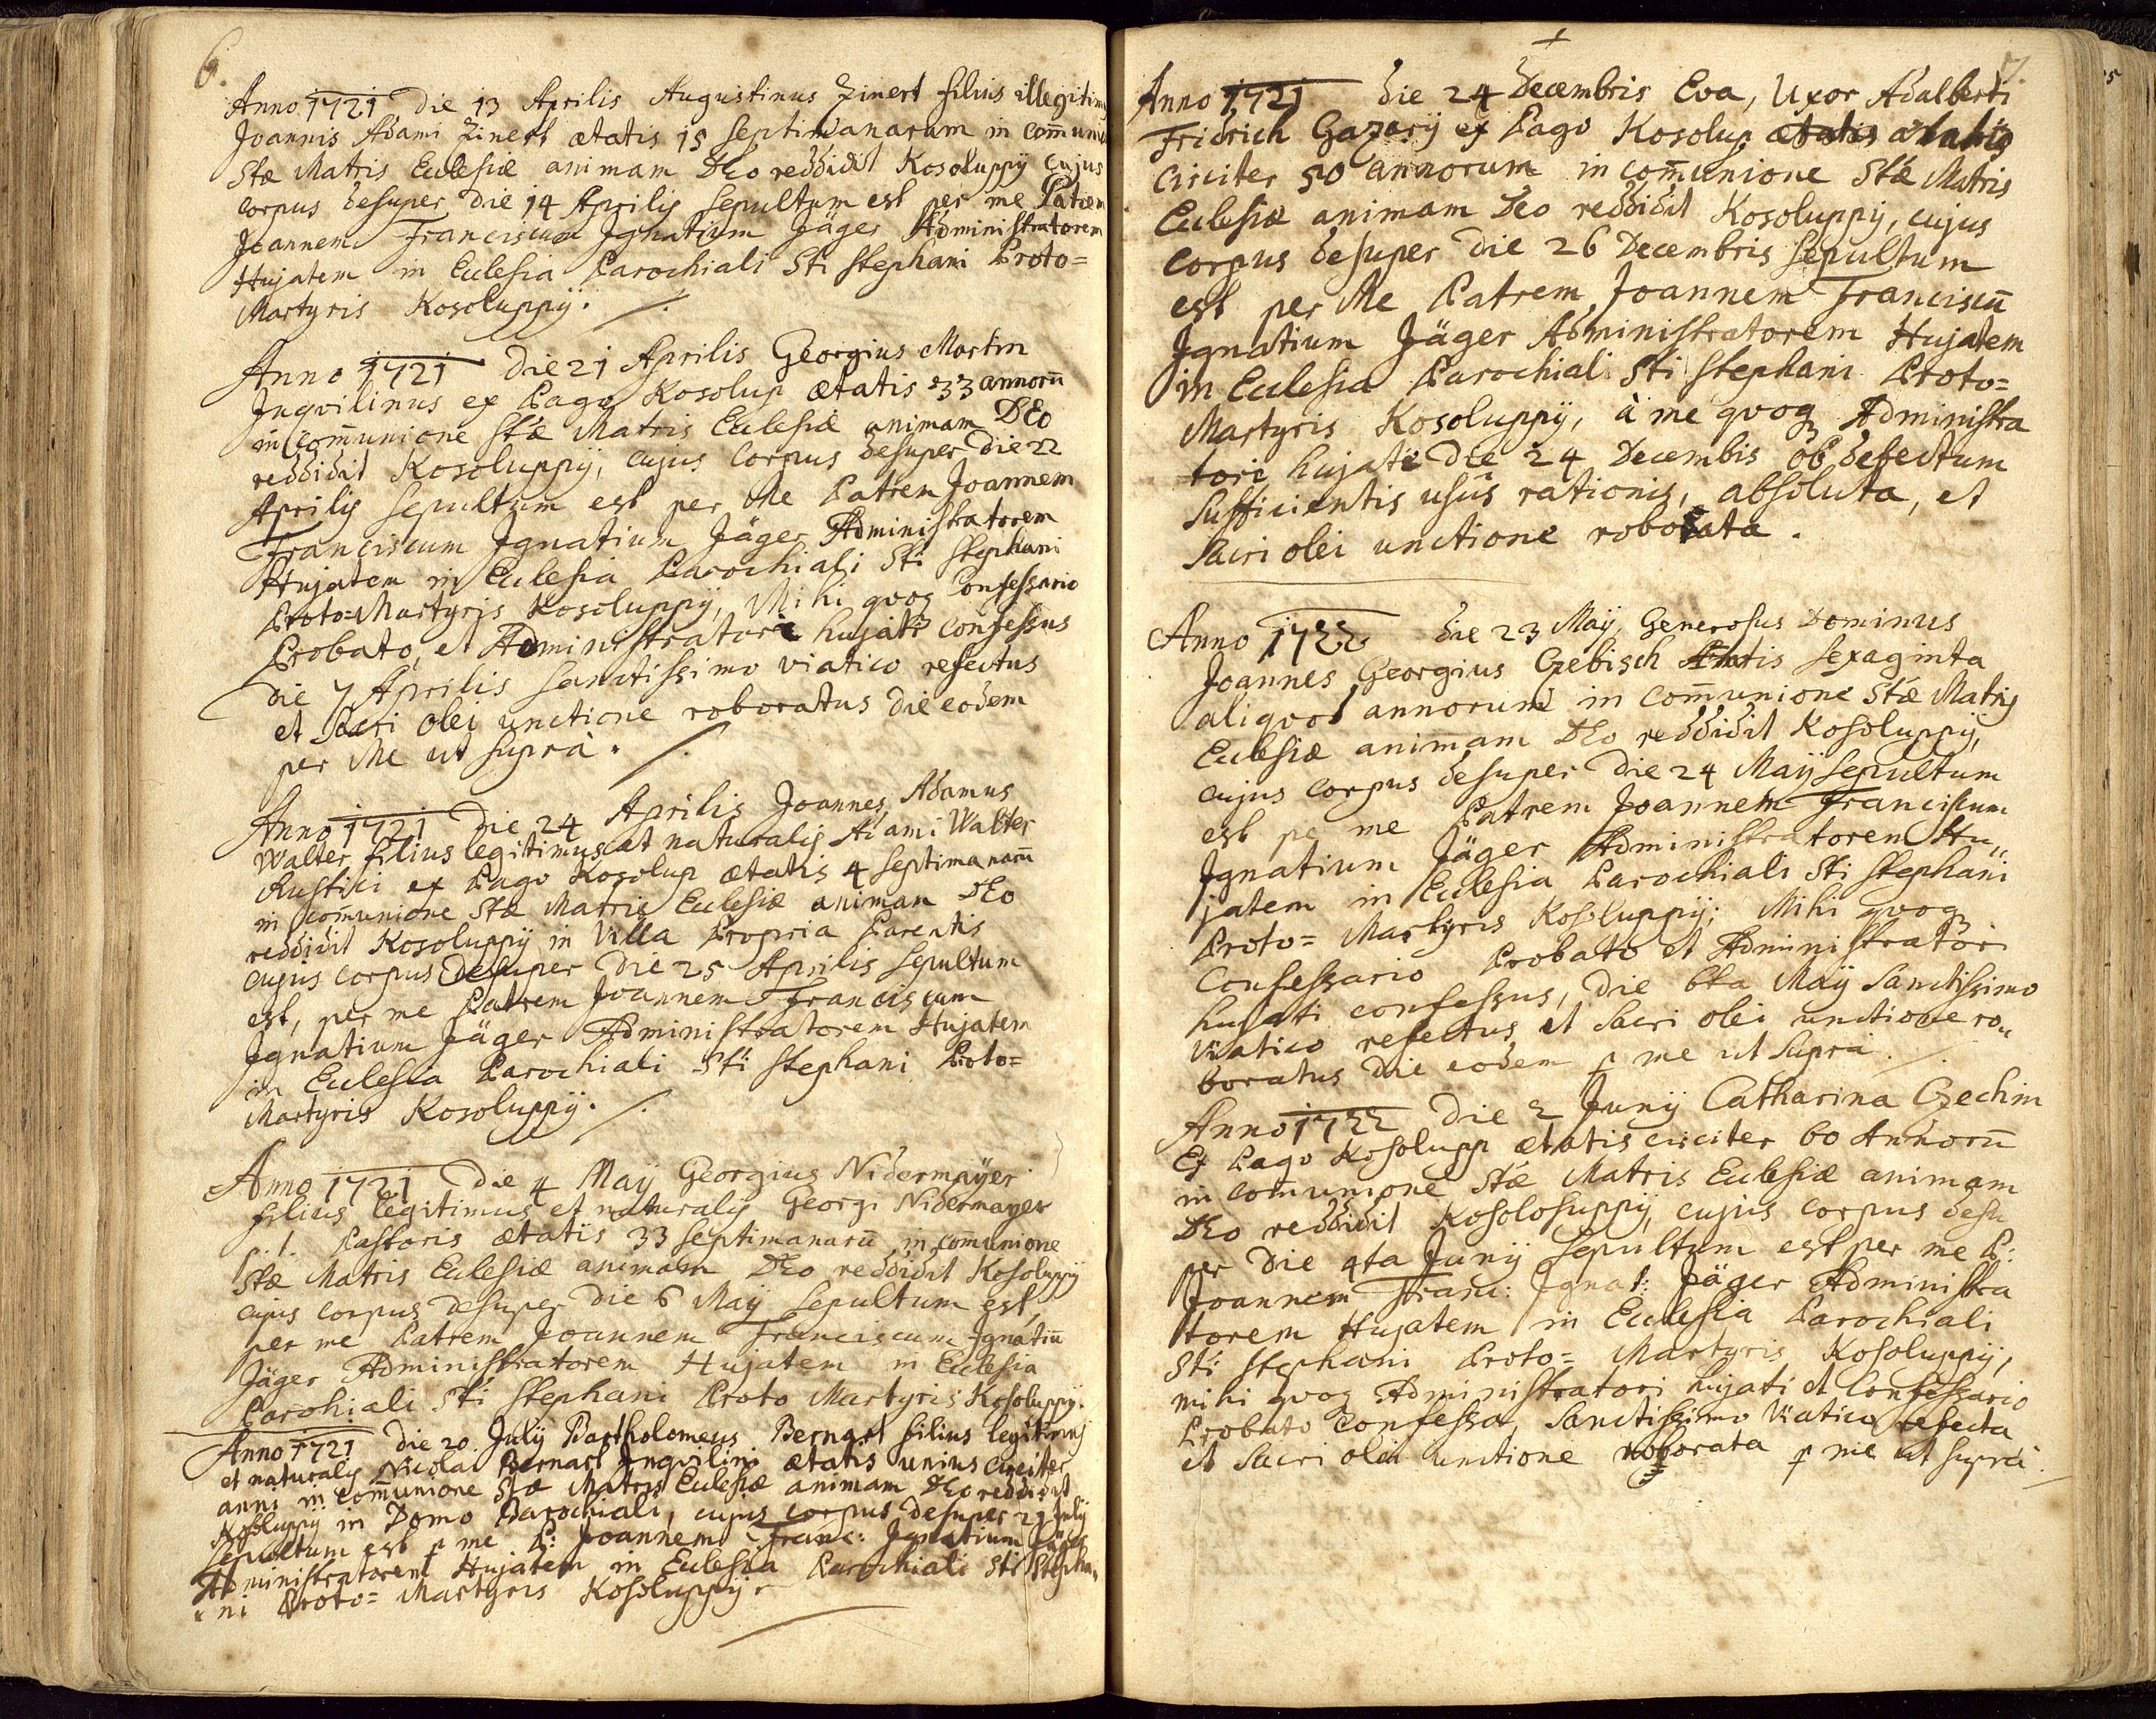 6.
Anno 1721 Die 13 Aprilis Augustinus Zinert filius illegitim
Joannis Adami Zinert ætatis 15 septimanarum in com̄un
Stæ Matris Ecclesiæ animam DEo reddidit Kosoluppÿ cujus
corpus desuper Die 14 Aprilis sepultum est per me Patrem
Joannem Franciscum Jgnatium Jäger Administratorem
Hujatem in Ecclesia Parochiali Sti Stephani Proto=
Martyris Kosoluppÿ. /.
Anno 1721 Die 21 Aprilis Georgius Martin
Jnqvilinus ex Pago Kosolup ætatis 33 annorū
in com̄unione stæ Matris Ecclesiæ animam DEo
reddidit Kosoluppÿ, cujus Corpus desuper Die 22
Aprilis sepultum est per Me Patrem Joannem
Franciscum Jgnatium Jäger Administratorem
Hujatem in Ecclesia Parochiali Sti Stephani
Proto=Martyris Kosoluppÿ, Mihi qvoq Confessario
Probato, et Administratori hujati confessus
Die 7 Aprilis sanctissimo viatico refectus
et Sacri olei unctione roboratus Die eodem
per Me ut suprà. /.
Anno 1721 Die 24 Aprilis Joannes Adamus
Walter filius legitimus et naturalis Adami Walter
Rustici ex Pago Kosolup ætatis 4 septimanarū
in com̄unione Stæ Matris Ecclesiæ animam DEo
reddidit Kosoluppÿ in Villa Propria Parentis
cujus corpus desuper Die 25 Aprilis sepultum
est, per me Patrem Joannem Franciscum
Jgnatium Jäger Administratorem Hujatem
in Ecclesia Parochiali Sti Stephani Proto=
Martyris Kosoluppÿ. /.
Anno 1721 Die 4 Maÿ Georgius Nidermaÿer
filius legitimus et naturalis Georgi Nidermayer
Pastoris ætatis 33 septimanarū in com̄unione
Stæ Matris Ecclesiæ animam DEo reddidit Kosoluppÿ
cujus corpus desuper Die 6 Maÿ sepultum est,
per me Patrem Joannem Franciscum Jgnatiū
Jäger Administratorem Hujatem in Ecclesia
Parohiali Sti Stephani Proto Martyris Kosoluppÿ.
Anno 1721 Die 20 Julÿ Bartholomeus Bernart filius legitimus
et naturalis Nicolai Bernart Jnqvilini ætatis unius circiter
anni in com̄unione Stæ Matris Ecclesiæ animam DEo reddidit
Kosoluppÿ in Domo Parochiali, cujus corpus desuper 21 Julÿ
sepultum est p me P: Joannem Franc: Jgnatium Jäger
Administratorem Hujatem in Ecclesia Parochiali Sti Stepha
ni Proto= Martyris Kosoluppÿ.
7.
Anno 1721 Die 24 Decembris Eva, Uxor Adalberti
Fridrich Gazarÿ ex Pago Kosolup ætatis ætatis
circiter 50 annorum in com̄unione Stæ Matris
Ecclesiæ animam Deo reddidit Kosoluppÿ, cujus
corpus desuper Die 26 Decembris sepultum
est per Me Patrem Joannem Franciscū
Jgnatium Jäger Administratorem Hujatem
in Ecclesia Parochiali Sti Stephani Proto=
Martyris Kosoluppÿ, à me qvoq Administra
tore hujate Die 24 Decembis ob defectum
sufficientis usûs rationis, absoluta, et
Sacri olei unctione roborata.
Anno 1722 Die 23 Maÿ Generosus Dominus
Joannes Georgius Czebisch Ætatis sexaginta
aliqvod annorum in com̄unione Stæ Matris
Ecclesiæ animam DEo reddidit Kosoluppÿ,
cujus corpus desuper Die 24 Maÿ sepultum
est pe me Patrem Joannem Franciscum
Jgnatium Jäger Administratorem Hu„
jatem in Ecclesia Parochiali Sti Stephani
Proto= Martyris Kosoluppÿ; Mihi qvoq
Confessario Probato et Administratori
hujati confessus, Die 6ta Maÿ Sanctissimo
Viatico refectus et Sacri olei unctione ro„
boratus Die eodem p me ut Supra. /.
Anno 1722 Die 2 Junÿ Catharina Czechin
Ex Pago Kosolupp ætatis circiter 60 Annorū
in com̄unione Stæ Matris Ecclesiæ animam
DEo reddidit Kosolosuppÿ, cujus corpus desu
per Die 4ta Junÿ sepultum est per me P:
Joannem Franc: Jgnat: Jäger Administra
torem Hujatem in Ecclesia Parochiali
Sti Stephani Proto= Martyris Kosoluppÿ,
mihi qvoq Administratori hujati et Confessario
Probato Confessa, Sanctissimo Viatico refecta
et Sacri olei unctione roborata p me ut supra.